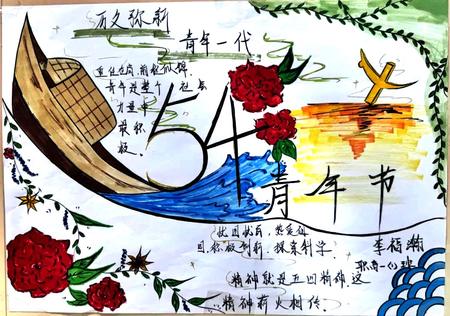 历久弥新
青年一代
责任在肩,
青年是整个社会
力量中
最积
极、
54
青年节
忧国忧民,热爱祖
国,积极创新,探索科学
精神就是五四精神,这
精神薪火相传.
李